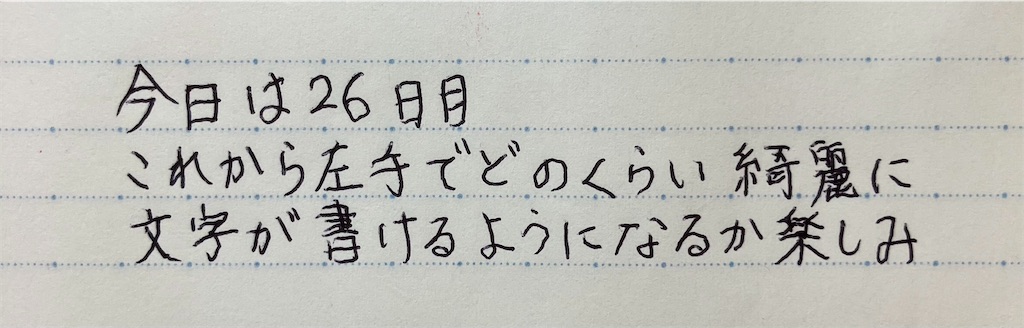 今日は26日目
これから左手でどのくらい綺麗に
文字が書けるようになるか楽しみ